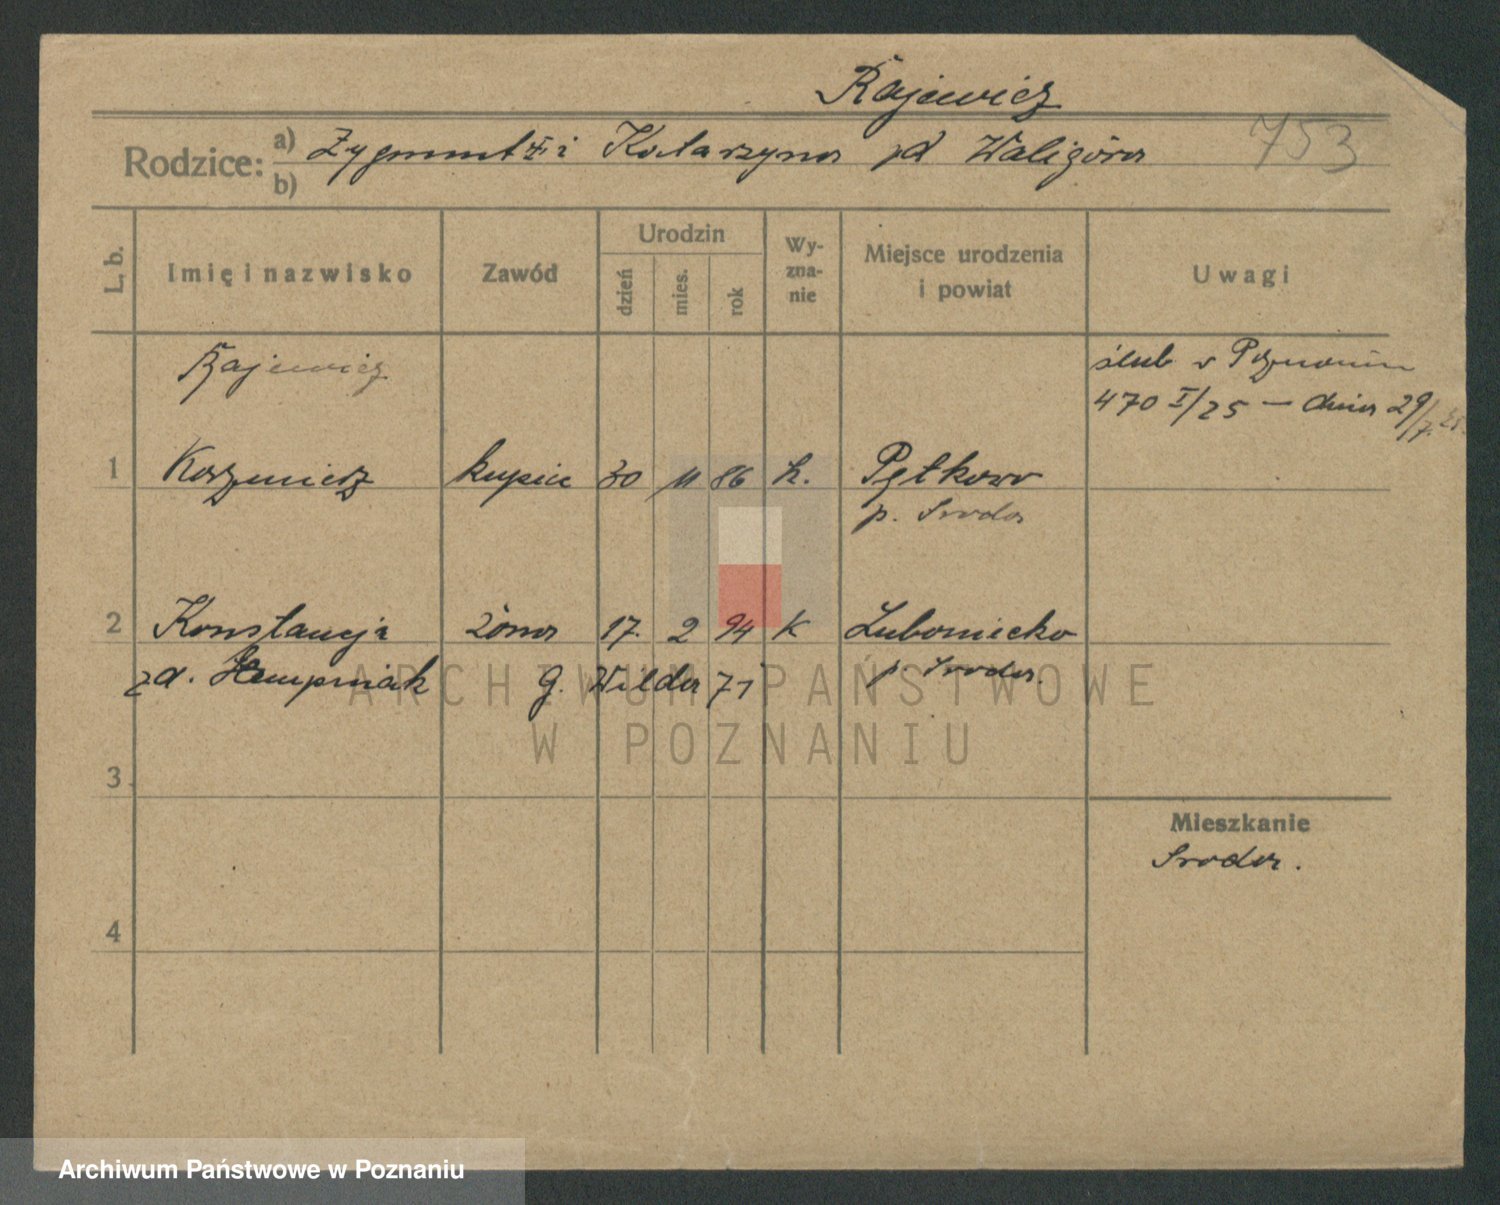 Rajewicz
753
Rodzice: a) Zygmunt i Katarzyna zd Waligóra
b)
L. b.
Imię i nazwisko
Zawód
Urodzin
dzień
mies.
rok
Wy-
zna-
nie
Miejsce urodzenia
i powiat
Uwagi
Rajewicz
ślub w Poznaniu
470 I/25 — dnia 29/7. 25.
1 Kazimierz kupiec 30 11 86 k. Pętkowo
p. Sroda
2 Konstancja żona 17. 2 94 K Lubomiecko
zd. Hempniak G. Wilda 71 p. Sroda.
3
Mieszkanie
Sroda.
4
ARCHIWUM PAŃSTWOWE
W POZNANIU
Archiwum Państwowe w Poznaniu